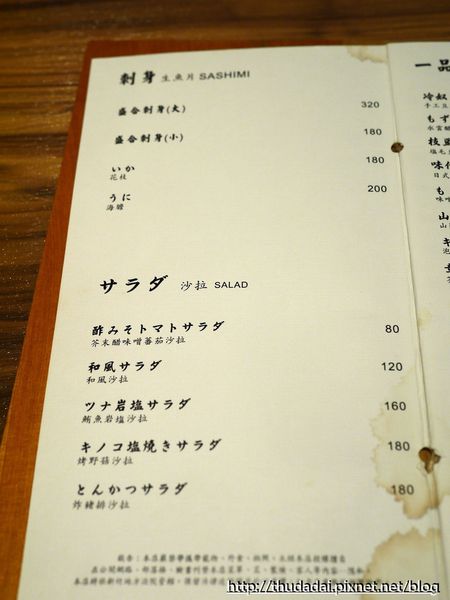 刺身 生魚片 SASHIMI
盛合刺身(大) 320
盛合刺身(小) 180
いか 180
花枝
うに 200
海膽
サラダ 沙拉 SALAD
酢みそトマトサラダ 80
芥末醋味噌蕃茄沙拉
和風サラダ 120
和風沙拉
ツナ岩塩サラダ 160
鮪魚岩塩沙拉
キノコ塩焼きサラダ 180
烤野菇沙拉
とんかつサラダ 180
炸豬排沙拉
一品
冷奴
手工豆
もず
水雲醋
枝豆
塩毛
味付
日式
も
味噌
山
山
キ
泡
http://thudadai.pixnet.net/blog